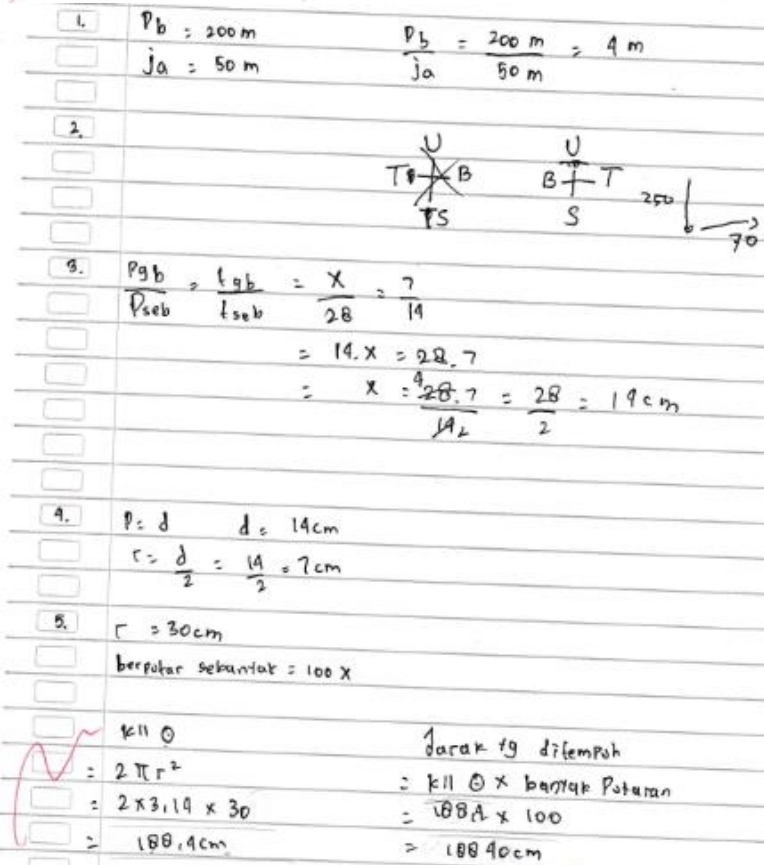 1. Pb = 200 m
ja = 50 m
Pb / ja = 200 m / 50 m = 4 m
2.
U
T B
TS
U
B T
S
250
70
3. Pgb / Pseb = tgb / tseb = x / 28 = 7 / 14
= 14. x = 28. 7
= x = 28. 7 / 14 = 28 / 2 = 14 cm
4. P = d d = 14 cm
r = d / 2 = 14 / 2 = 7 cm
5. r = 30 cm
berputar sebanyak = 100 x
kll ⊙
= 2 π r²
= 2 x 3,14 x 30
= 188,4 cm
Jarak yg ditempuh
= kll ⊙ x banyak Putaran
= 188,4 x 100
= 188 40 cm